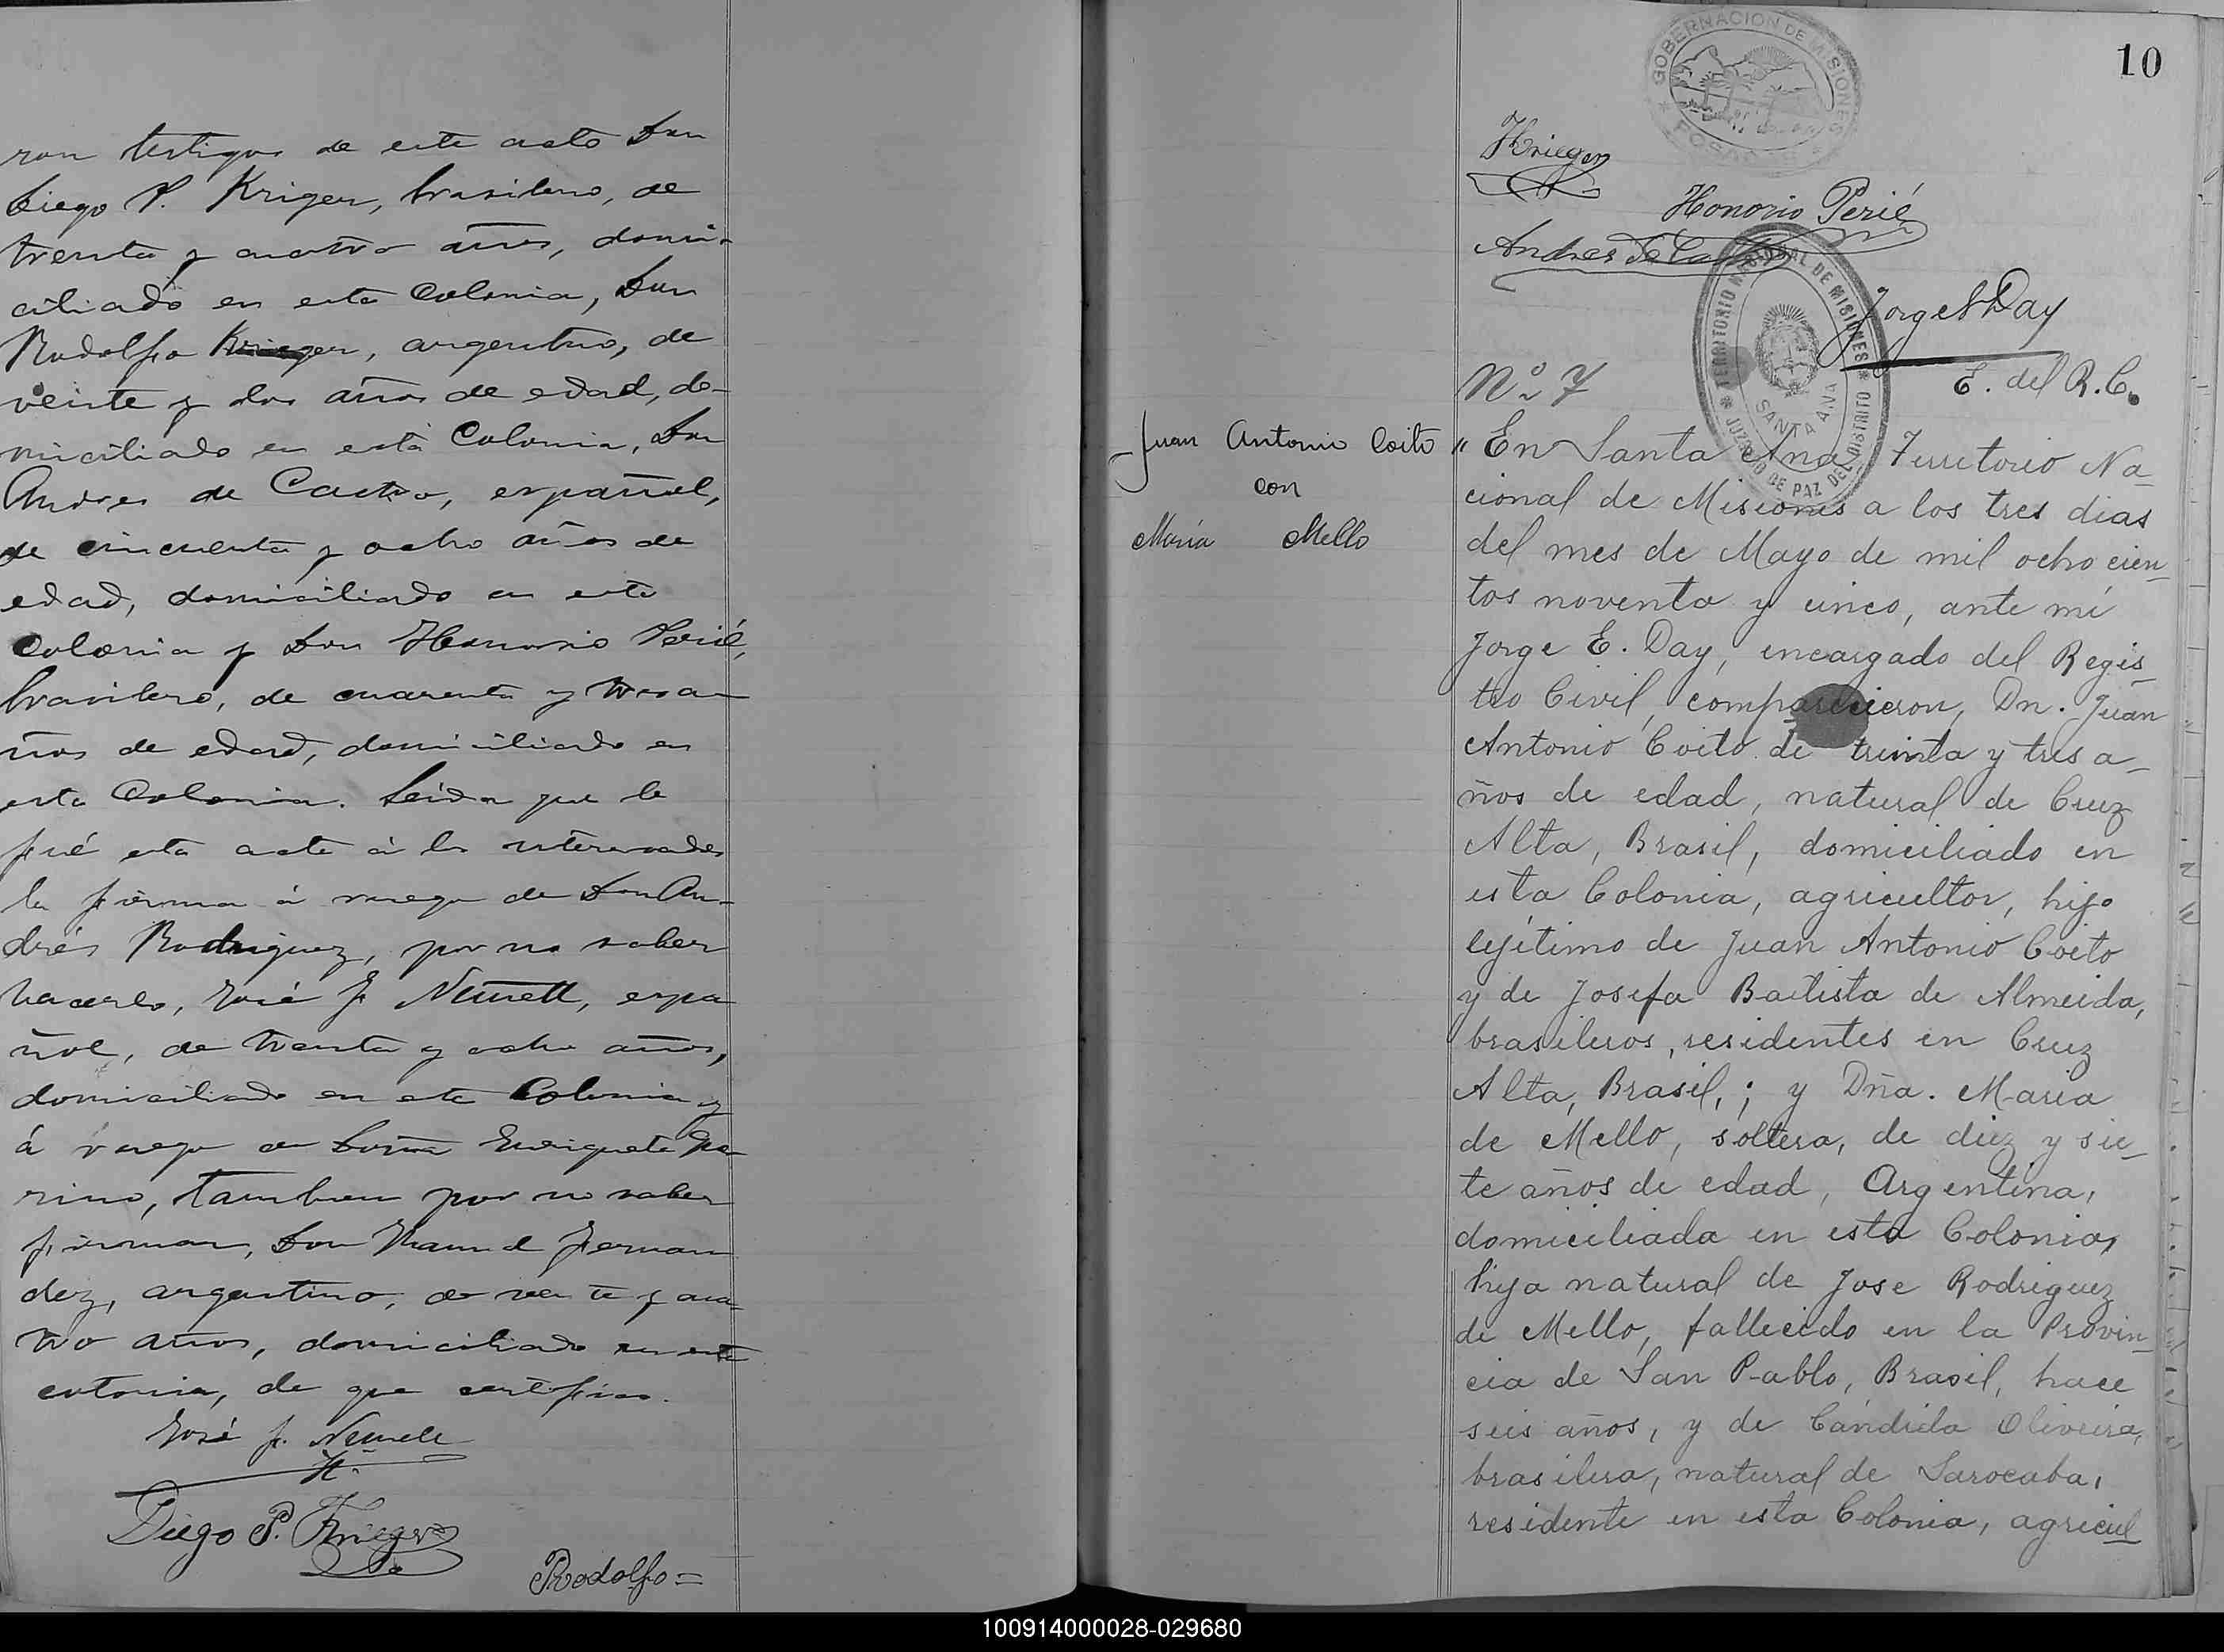 ron testigos de este acto Don
Diego P. Kriger, brasilero, de
treinta y cuatro años, domi-
ciliado en esta Colonia, Don
Rodolfo Krieger, argentino, de
veinte y dos años de edad, do-
miciliado en esta Colonia, Don
Andres de Castro, español,
de cincuenta y ocho años de
edad, domiciliado en esta
Colonia y Don Honorio Perié,
brasilero, de cuarenta y tres a-
ños de edad, domiciliado en
esta Colonia. Leida que le
fué esta acta á los interesados
la firma á ruego de Don An-
drés Rodriguez, por no saber
hacerlo, José F. espa
ñol, de treinta y ocho años,
domiciliado en esta Colonia y
á ruego de Doña Enriqueta
rino, tambien por no saber
firmar, Don Manuel Fernan
dez, argentino, de veinte y cua-
tro años, domiciliado en esta
colonia, de que certifico.
José F.
Diego P. Krieger
Rodolfo =
10
GOBERNACION DE MISIONES
POSADAS
Krieger
Honorio Perié
Andres de Castro
TERRITORIO NACIONAL DE MISIONES
JUZGADO DE PAZ DEL DISTRITO
SANTA ANA
Jorge E Day
E. del R. C.
Nº 7
Juan Antonio Coito
con
María Mello
" En Santa Ana, Territorio Na_
cional de Misiones a los tres dias
del mes de Mayo de mil ocho cien_
tos noventa y cinco, ante mí
Jorge E. Day, encargado del Regis_
tro Civil, comparecieron, Dn. Juan
Antonio Coito de treinta y tres a_
ños de edad, natural de Cruz
Alta, Brasil, domiciliado en
esta Colonia, agricultor, hijo
lejítimo de Juan Antonio Coito
y de Josefa Batista de Almeida,
brasileros, residentes en Cruz
Alta, Brasil, ; y Dña. Maria
de Mello, soltera, de diez y sie_
te años de edad, Argentina,
domiciliada en esta Colonia,
hija natural de Jose Rodriguez
de Mello, fallecido en la Provin_
cia de San Pablo, Brasil, hace
seis años, y de Cándida Oliveira,
brasilera, natural de Sarocaba,
residente en esta Colonia, agricul
100914000028-029680